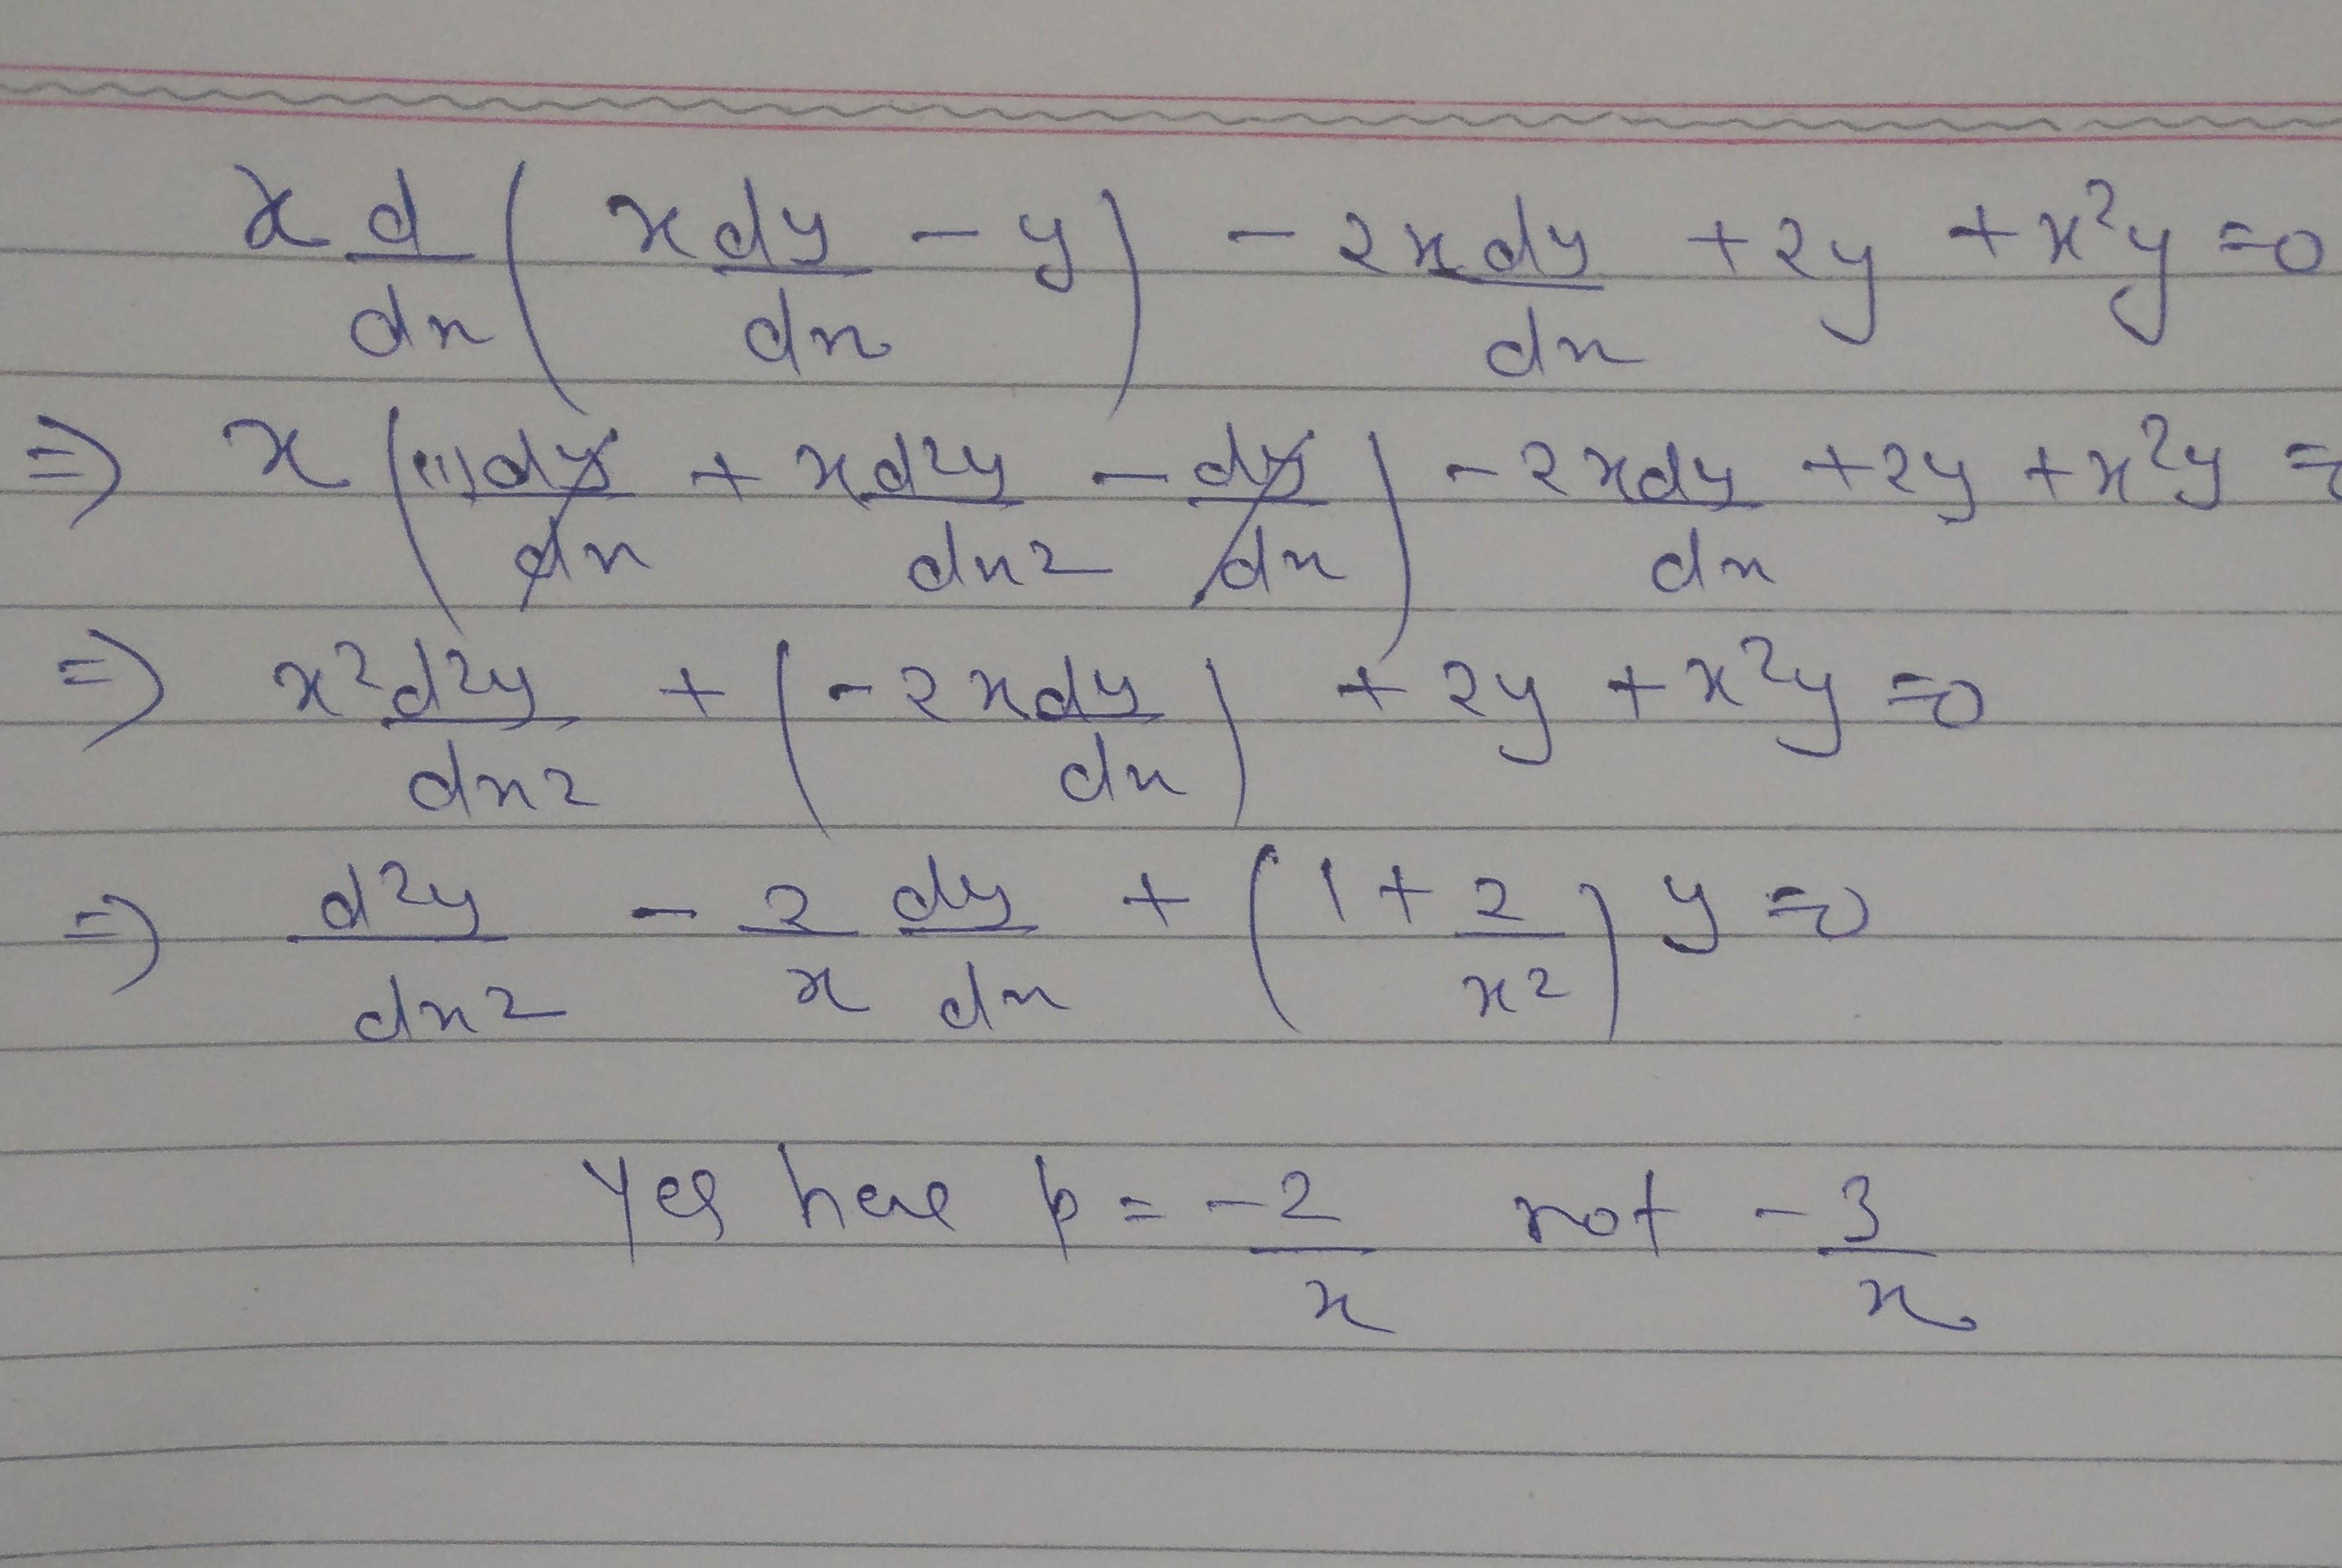 x d/dx ( x dy/dx - y ) - 2x dy/dx + 2y + x²y = 0
⇒ x ( (1) dy/dx + x d²y/dx² - dy/dx ) - 2x dy/dx + 2y + x²y =
⇒ x² d²y/dx² + ( -2x dy/dx ) + 2y + x²y = 0
⇒ d²y/dx² - 2/x dy/dx + ( 1 + 2/x² ) y = 0
Yes here p = -2/x not -3/x